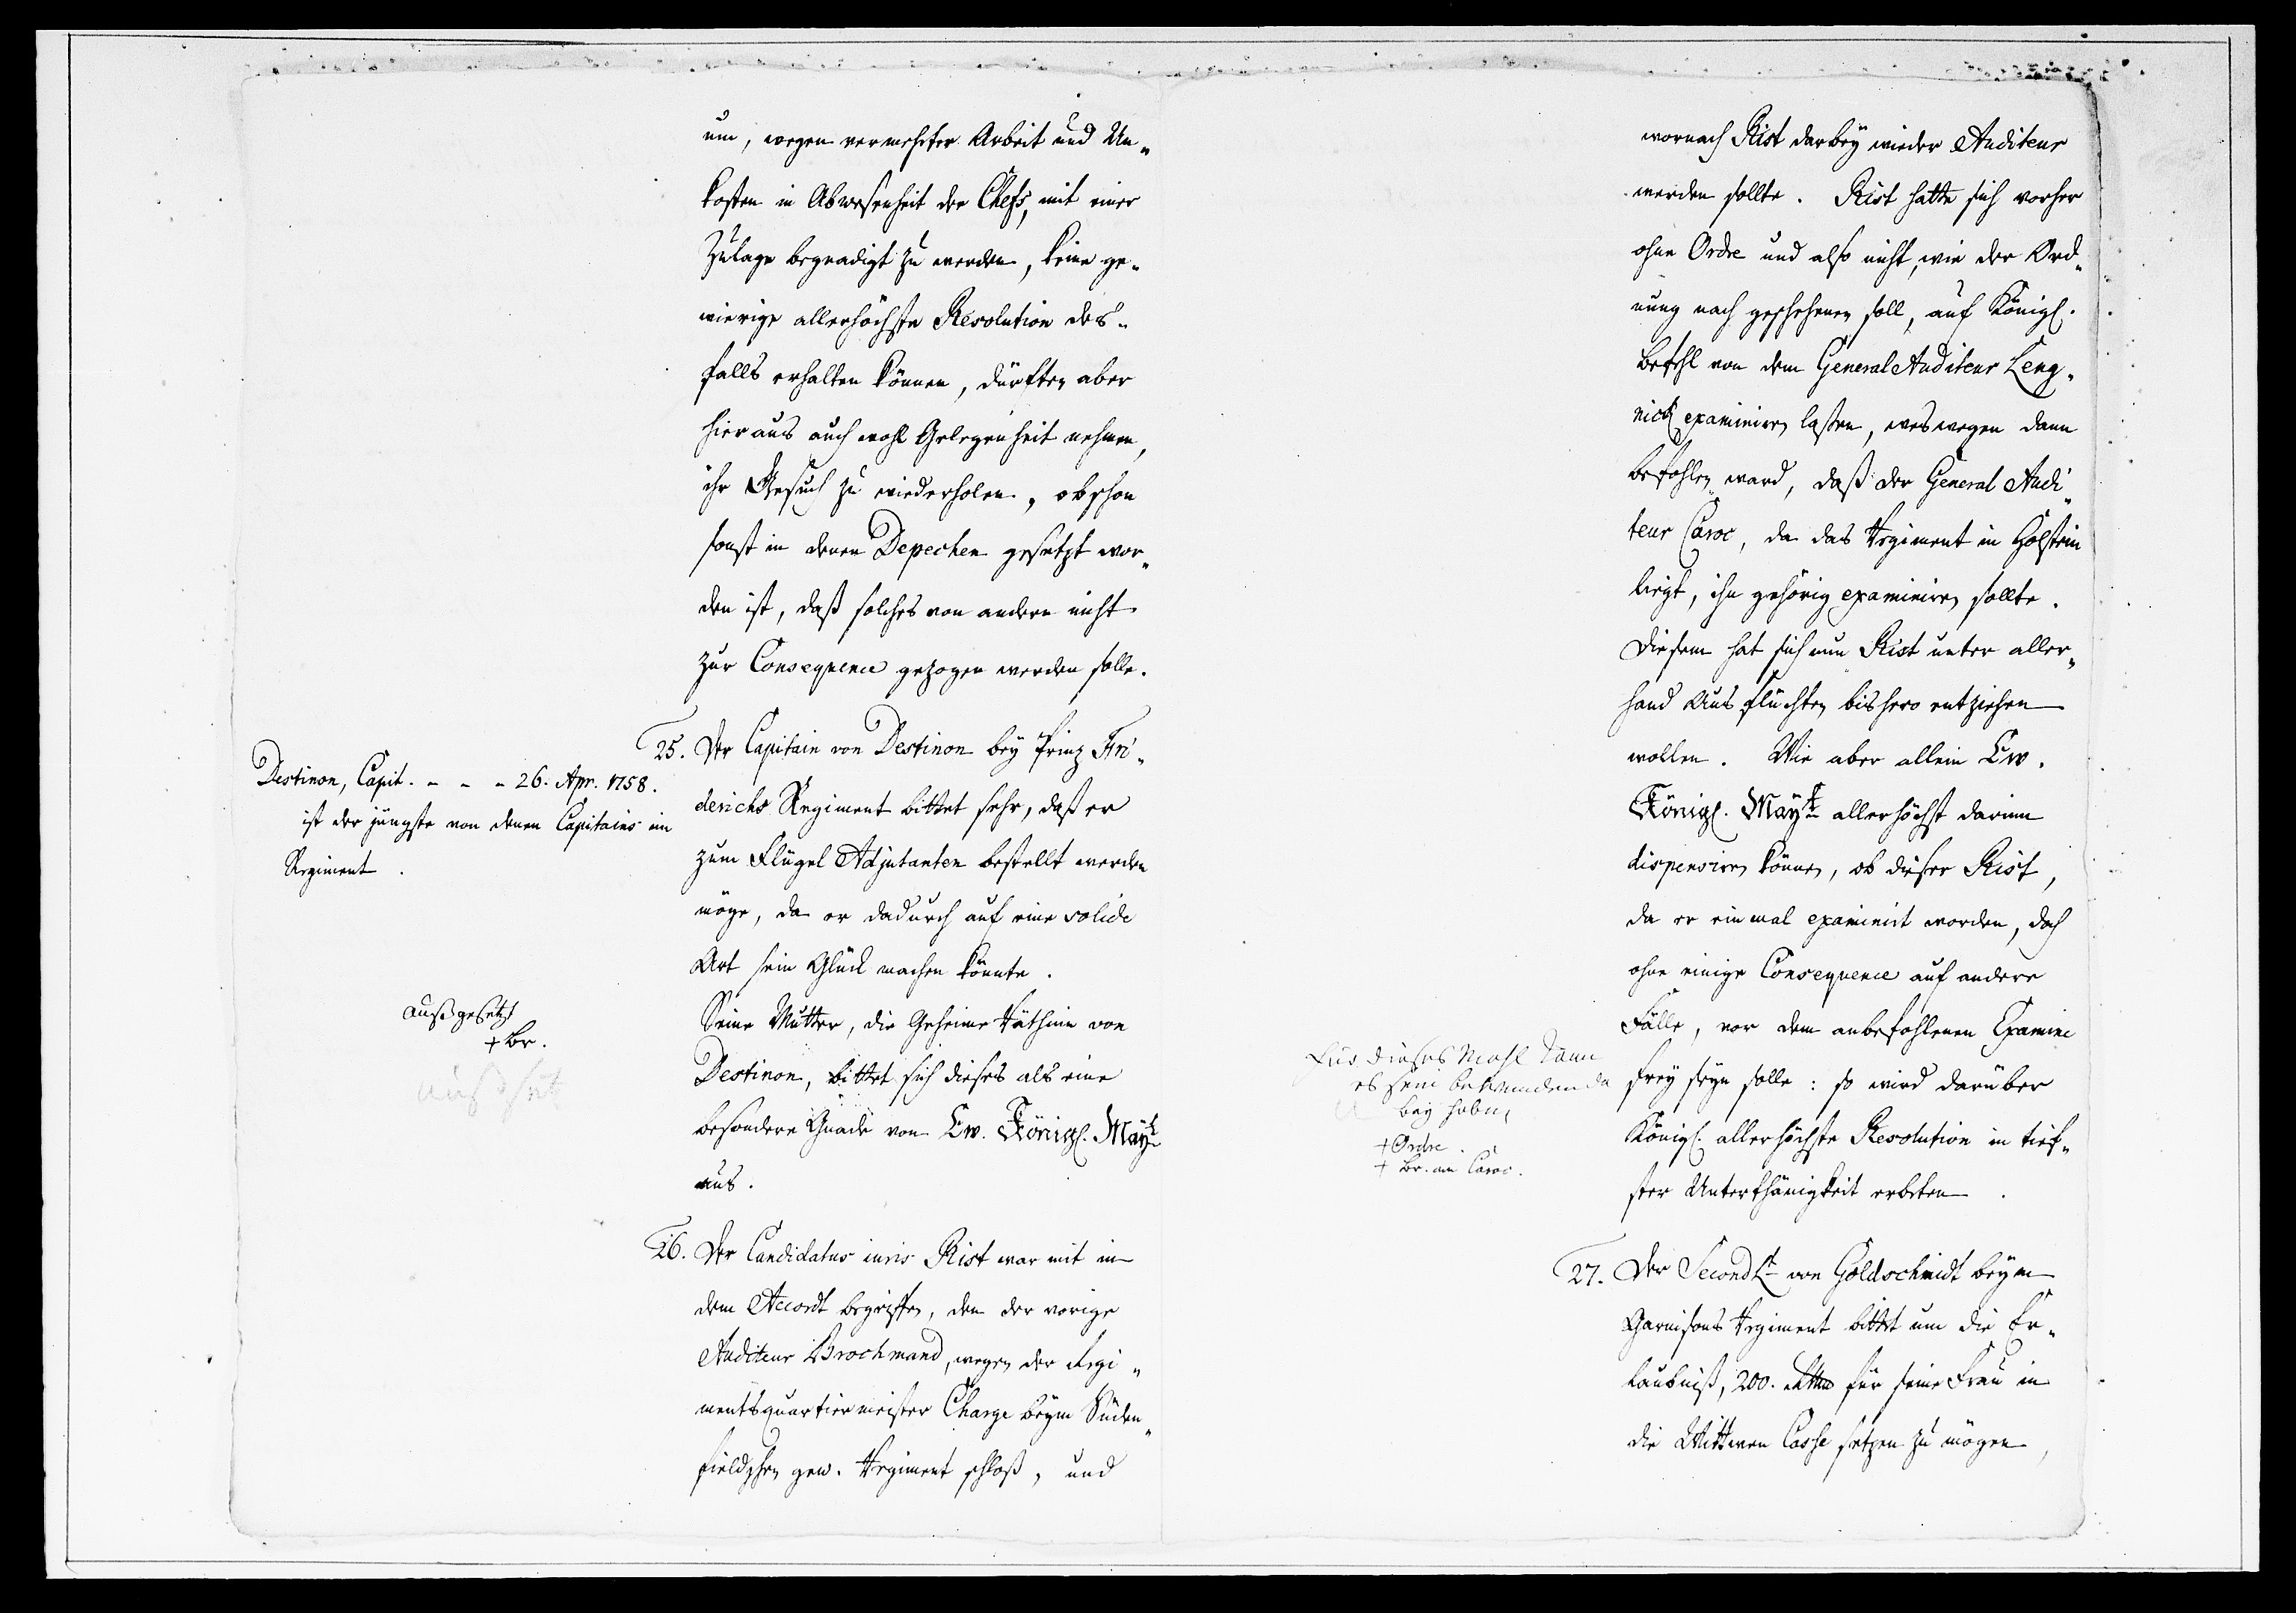 um, wegen vermehrter Arbeit und Un„
kosten in Abwesenheit der Chefs, mit einer
Zulage begnadigt zu werden, keine ge„
wierige allerhöchste Resolution des„
falls erhalten können, dürften aber
hieraus auch wohl Gelegenheit nehmen,
ihr Gesuch zu wiederholen, obschon
sonst in denen Depechen gesetzt wor„
den ist, daß solches von andern nicht
zur Consequence gezogen werden solle.
25. Der Capitain von Destinon bey Prinz Fri„
derichs Regiment bittet sehr, daß er
zum Flügel Adjutanten bestellt werden
möge, da er dadurch auf eine solide
Art sein Glück machen könnte.
Seine Mutter, die Geheime Räthinn von
Destinon, bittet sich dieses als eine
besondere Gnade von Ew. Königl. Mayt
aus.
Destinon, Capit. - - - 26. Apr. 1758.
ist der jüngste von denen Capitains im
Regiment.
ausgesetzt
+ Br.
26. Der Candidatus iuris Rist war mit in
dem Accordt begriffen, den der vorige
Auditeur Brochmand, wegen der Regi„
mentsquartiermeister Charge beym Süden„
fieldschen gew. Regiment schloß, und
wornach Rist darbey wieder Auditeur
werden sollte. Rist hatte sich vorher
ohne Ordre und also nicht, wie der Ord„
nung nach geschehenen soll, auf Königl.
Befehl von dem General Auditeur Leng„
nick examiniren laßen, weswegen dann
befohlen ward, daß der General Audi„
teur Caroc, da das Regiment in Holstein
liegt, ihn gehörig examiniren sollte.
Diesem hat sich nun Rist unter aller„
hand Ausflüchten bishero entziehen
wollen. Wie aber allein Ew.
Königl. Mayt allerhöchst darinn
dispensiren können, ob dieser Rist,
da er einmal examinirt worden, doch
ohne einige Consequence auf andere
Fälle, vor dem anbefohlenen Examine
frey seyn solle: so wird darüber
Königl. allerhöchste Resolution in tief„
ster Unterthänigkeit erbeten.
Für dieses Mahl kann
es sein bewenden da
bey haben
+ Ordre.
+ Br. an Caroc.
27. Der Second Lt von Goldschmidt beym
Garnisons Regiment bittet um die Er„
laubniß, 200. Rthlr für seine Frau in
die Wittwen Casse setzen zu mögen,